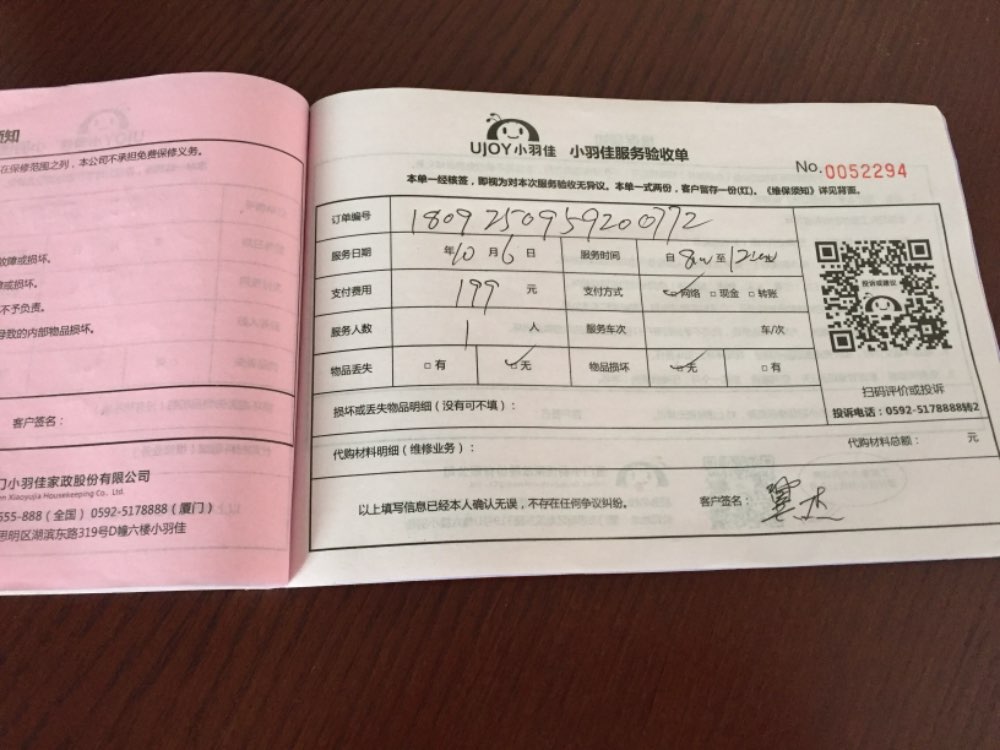 须知
在保修范围之列，本公司不承担免费保修义务。
故障或损坏。
障或损坏。
不予负责。
导致的内部物品损坏。
客户签名：
门小羽佳家政股份有限公司
en Xiaoyujia Housekeeping Co., Ltd.
555-888（全国）0592-5178888（厦门）
思明区湖滨东路319号D幢六楼小羽佳
UJOY小羽佳 小羽佳服务验收单
No.0052294
本单一经核签，即视为对本次服务验收无异议。本单一式两份，客户留存一份(红)。《维保须知》详见背面。
订单编号 1809250959200772
服务日期 年10月6日 服务时间 自8:00至12:00
支付费用 199 元 支付方式 ☑网络 □现金 □转账
服务人数 1 人 服务车次 车/次
物品丢失 □有 ☑无 物品损坏 ☑无 □有
投诉或建议
扫码评价或投诉
投诉电话：0592-5178888转2
损坏或丢失物品明细（没有可不填）：
代购材料明细（维修业务）： 代购材料总额： 元
以上填写信息已经本人确认无误，不存在任何争议纠纷。 客户签名：